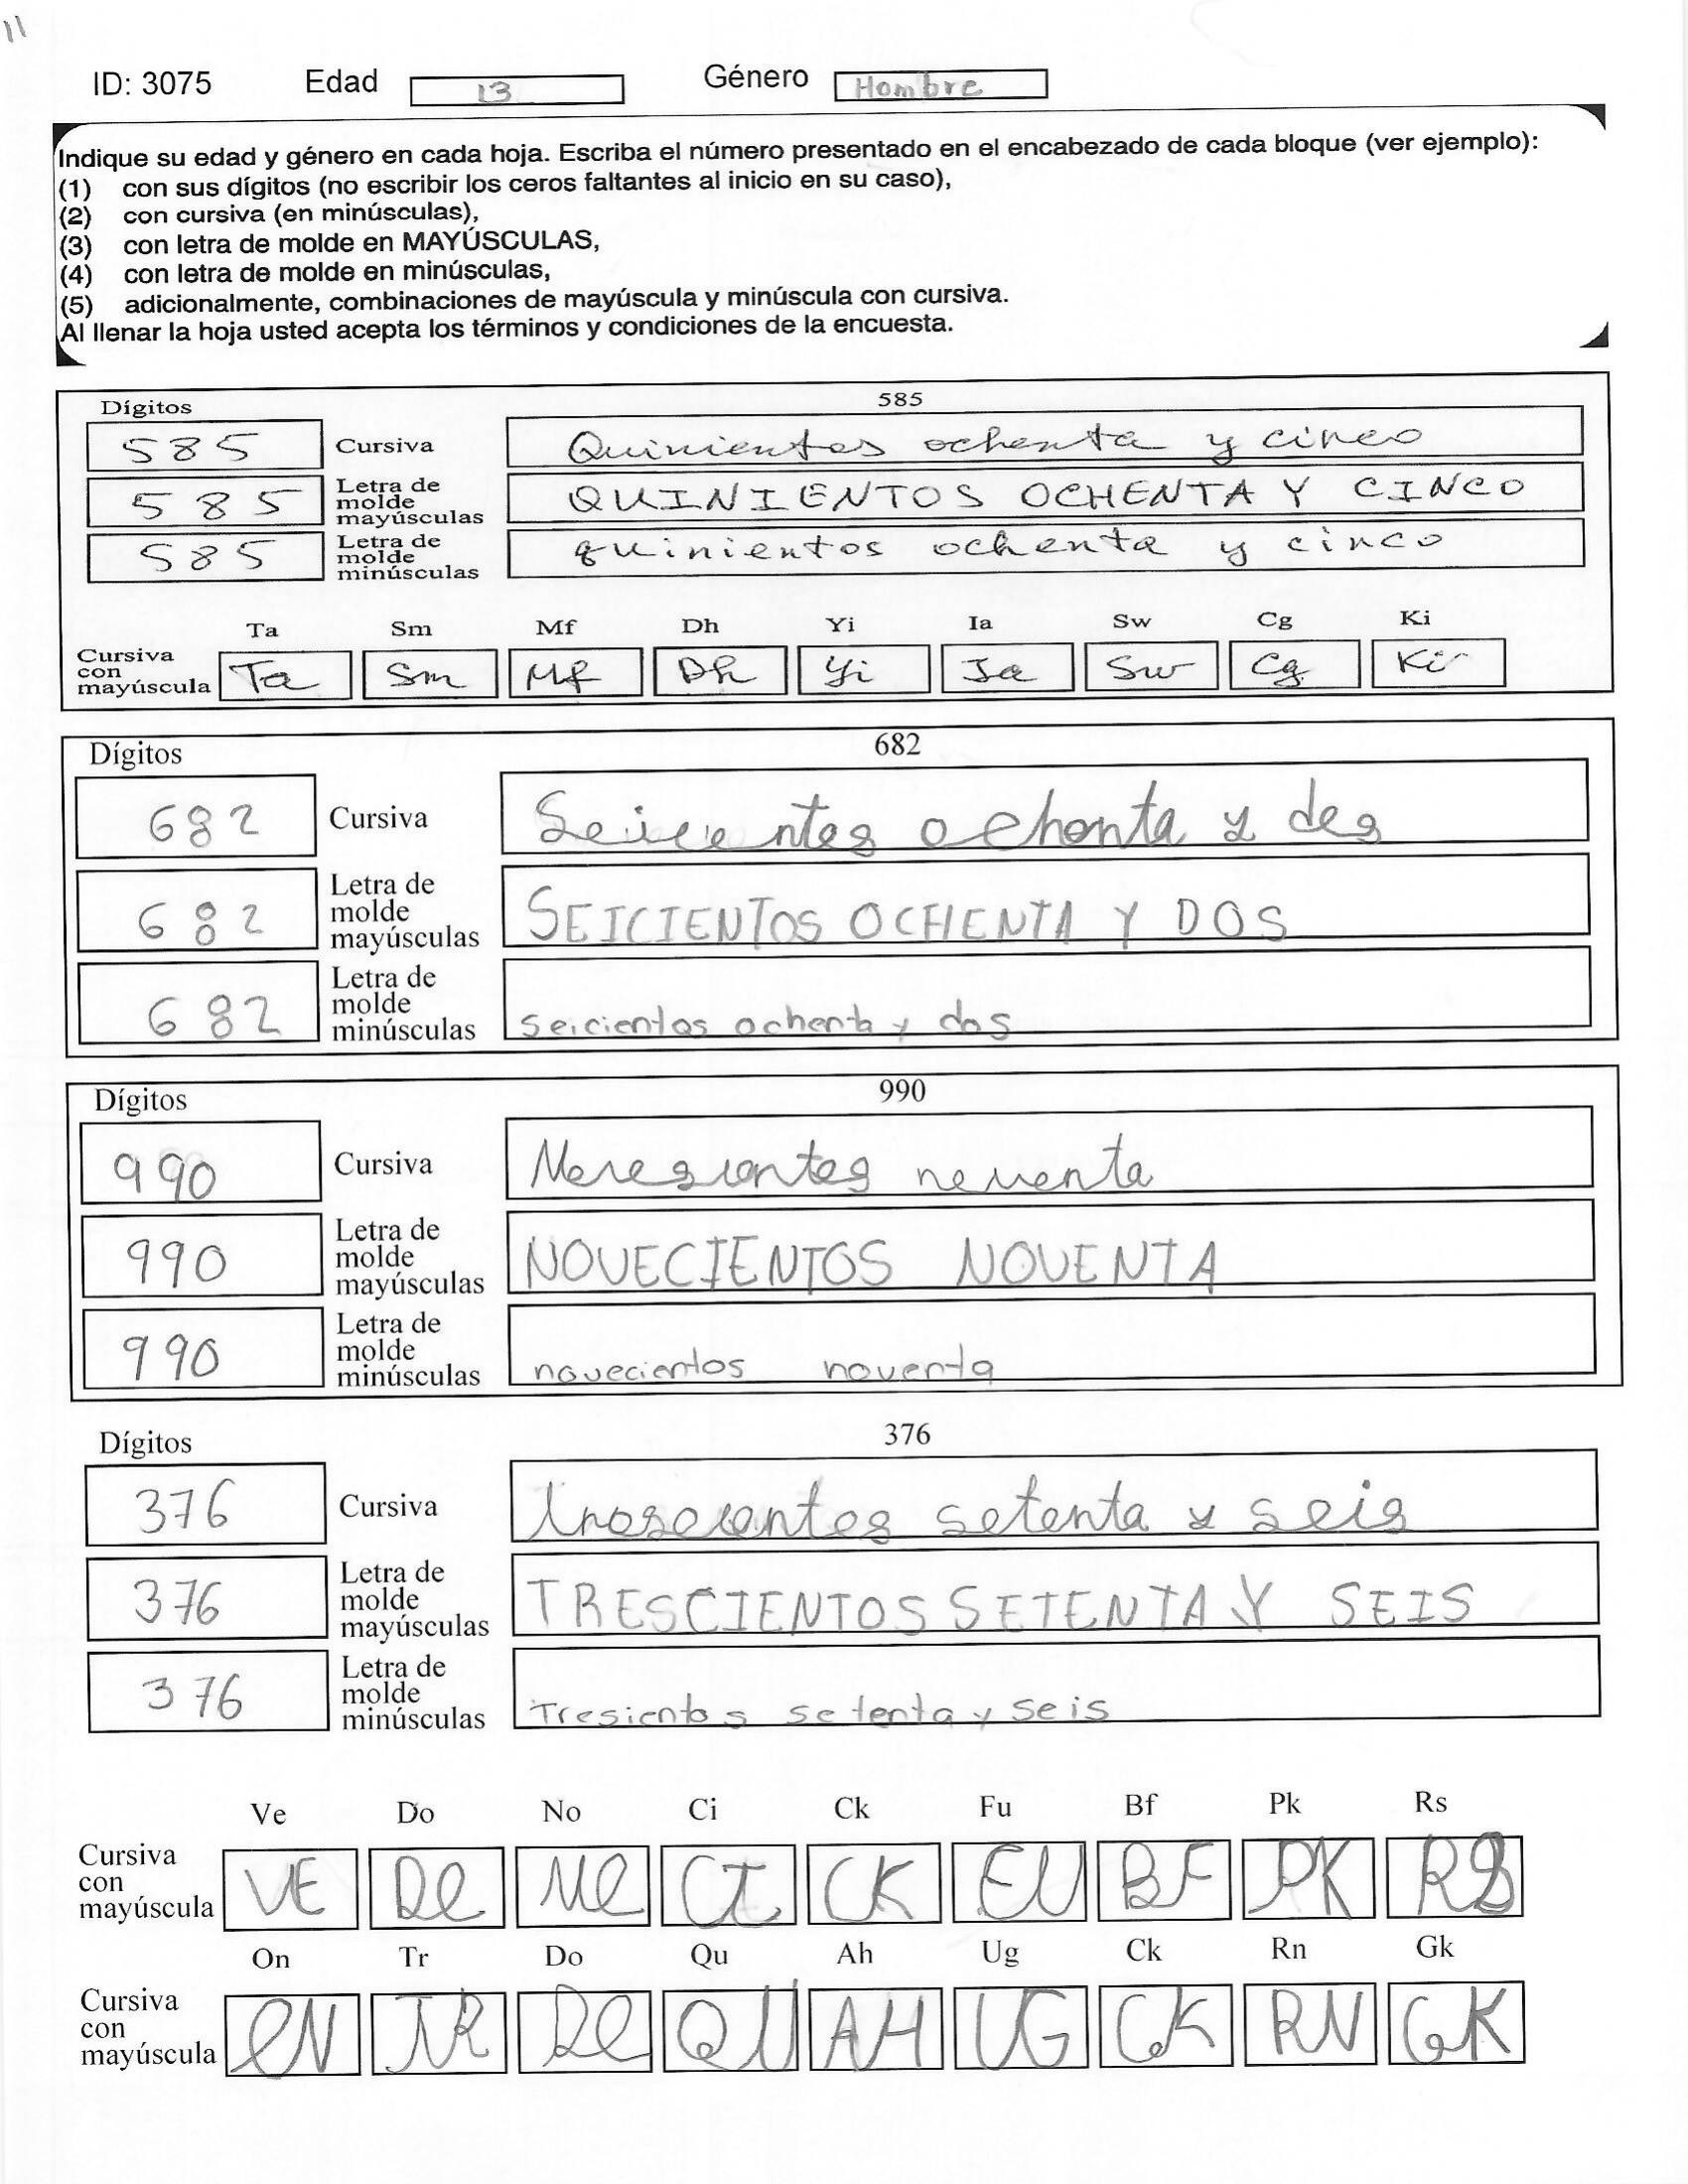 11
ID: 3075 Edad 13 Género Hombre
Indique su edad y género en cada hoja. Escriba el número presentado en el encabezado de cada bloque (ver ejemplo):
(1) con sus dígitos (no escribir los ceros faltantes al inicio en su caso),
(2) con cursiva (en minúsculas),
(3) con letra de molde en MAYÚSCULAS,
(4) con letra de molde en minúsculas,
(5) adicionalmente, combinaciones de mayúscula y minúscula con cursiva.
Al llenar la hoja usted acepta los términos y condiciones de la encuesta.
Dígitos 585
585 Cursiva Quinientos ochenta y cinco
585 Letra de molde mayúsculas QUINIENTOS OCHENTA Y CINCO
585 Letra de molde minúsculas quinientos ochenta y cinco
Ta Sm Mf Dh Yi Ia Sw Cg Ki
Cursiva con mayúscula Ta Sm Mf Dh Yi Ia Sw Cg Ki
Dígitos 682
682 Cursiva Seicientos ochenta y dos
682 Letra de molde mayúsculas SEICIENTOS OCHENTA Y DOS
682 Letra de molde minúsculas seicientos ochenta y dos
Dígitos 990
990 Cursiva noventa
990 Letra de molde mayúsculas NOVECIENTOS NOVENTA
990 Letra de molde minúsculas novecientos noventa
Dígitos 376
376 Cursiva setenta y seis
376 Letra de molde mayúsculas TRESCIENTOS SETENTA Y SEIS
376 Letra de molde minúsculas Tresientos setenta y seis
Ve Do No Ci Ck Fu Bf Pk Rs
Cursiva con mayúscula VE DO NO CI CK FU BF PK RS
On Tr Do Qu Ah Ug Ck Rn Gk
Cursiva con mayúscula ON TR DO QU AH UG CK RN GK